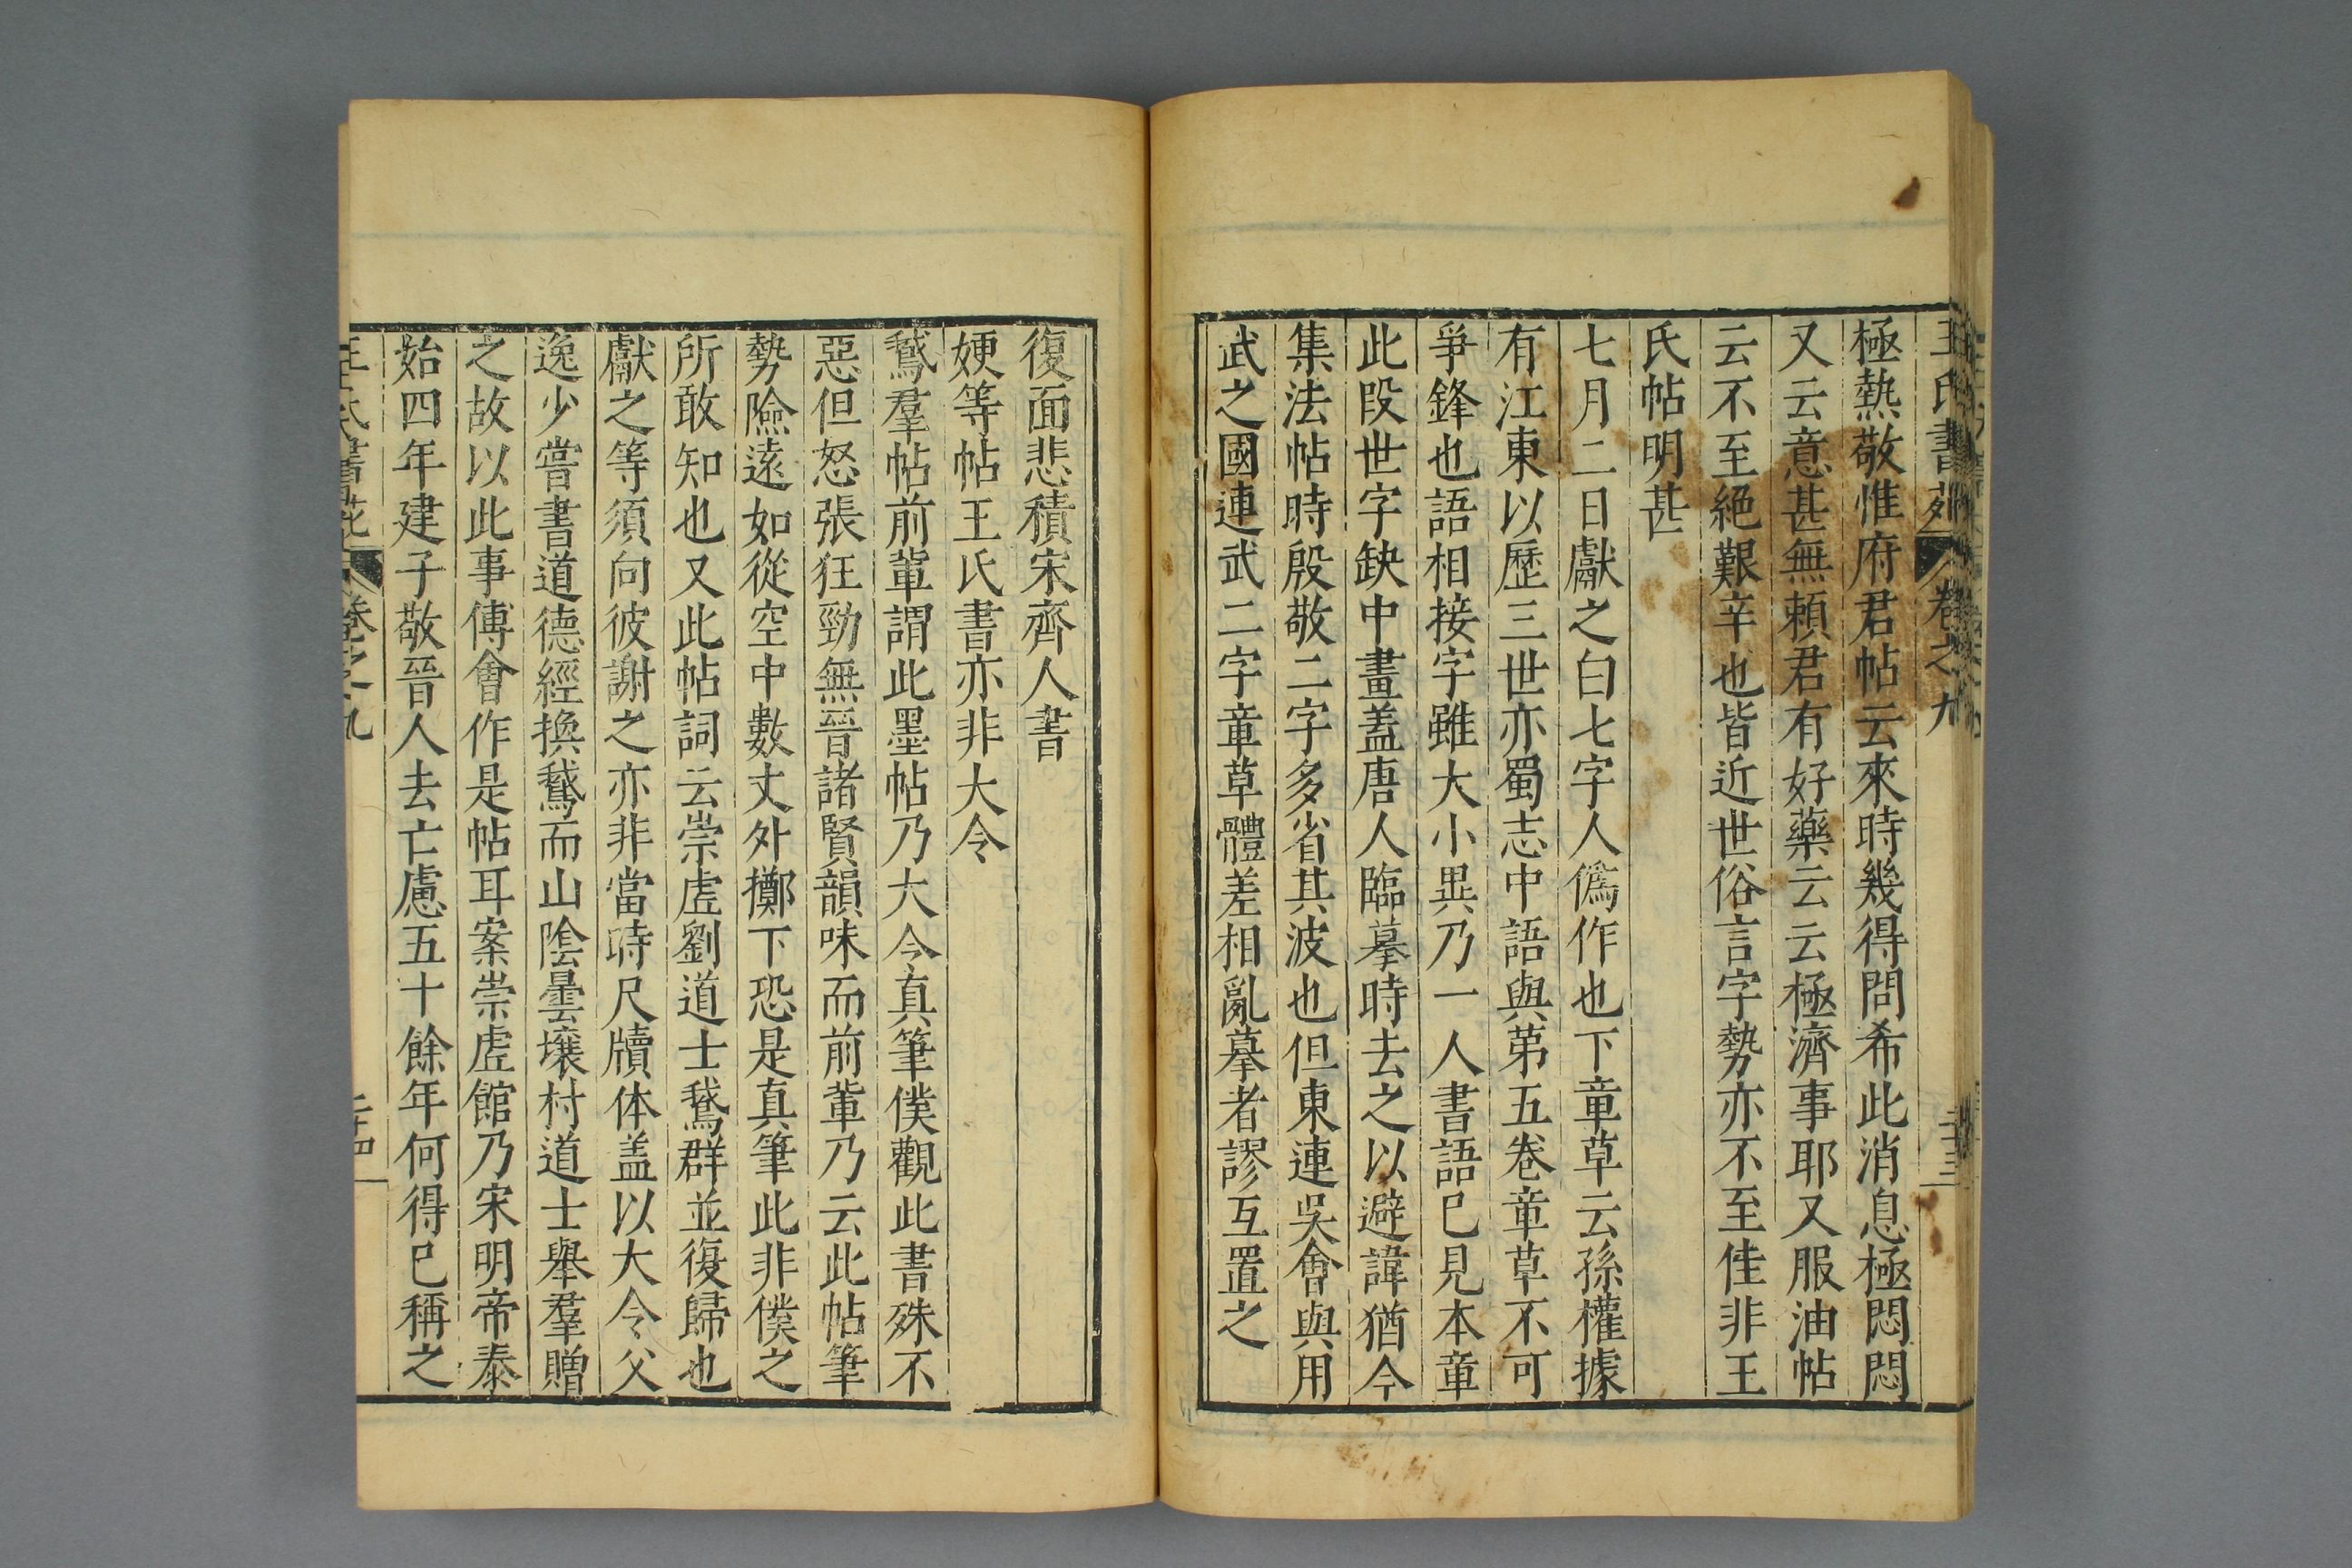 王氏書苑 卷之九 二十三
極熱敬惟府君帖云來時幾得問希此消息極悶悶
又云意甚無頼君有好藥云云極濟事耶又服油帖
云不至絕艱辛也皆近世俗言字勢亦不至佳非王
氏帖明甚
七月二日獻之白七字人僞作也下章草云孫權據
有江東以歷三世亦蜀志中語與第五卷章草不可
爭鋒也語相接字雖大小異乃一人書語已見本章
此段世字缺中畫蓋唐人臨摹時去之以避諱猶今
集法帖時殷敬二字多省其波也但東連吳會與用
武之國連武二字章草體差相亂摹者謬互置之
復面悲積宋齊人書
㛐等帖王氏書亦非大令
鵞羣帖前輩謂此墨帖乃大令真筆僕觀此書殊不
惡但怒張狂勁無晉諸賢韻味而前輩乃云此帖筆
勢險遠如從空中數丈外擲下恐是真筆此非僕之
所敢知也又此帖詞云崇虗劉道士鵞群並復歸也
獻之等須向彼謝之亦非當時尺牘体盖以大令父
逸少嘗書道德經換鵞而山陰曇㙲村道士舉羣贈
之故以此事傅會作是帖耳案崇虗館乃宋明帝泰
始四年建子敬晉人去亡慮五十餘年何得已稱之
王氏書苑 卷之九 二十四